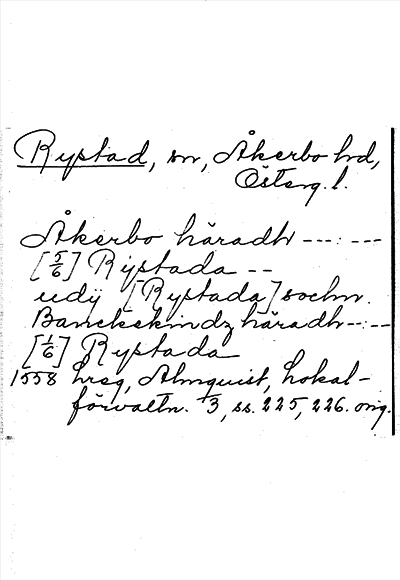 Rystad, sn, Åkerbo hd,
Österg. l.
Åkerbo häradh ---:---
[5/6] Rijstada --
udÿ [Rystada] sochn.
Banckekindz häradh--:--
[1/6] Rystada
1558 hreg, Almquist, Lokal-
förvaltn. 1/3, ss. 225, 226. orig.